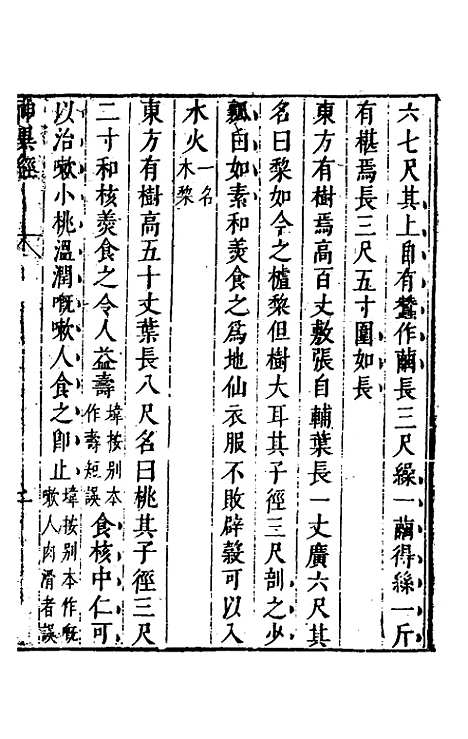 六七尺其上自有蠶作繭長三尺繰一繭得絲一斤
有椹焉長三尺五寸圍如長
東方有樹焉高百丈敷張自輔葉長一丈廣六尺其
名曰黎如今之樝黎但樹大耳其子徑三尺剖之少
瓤白如素和羮食之為地仙衣服不敗辟穀可以入
水火一名木黎
東方有樹高五十丈葉長八尺名曰桃其子徑三尺
二寸和核羮食之令人益壽墇按别本作壽短誤食核中仁可
以治嗽小桃溫潤嘅嗽人食之卽止墇按别本作嘅嗽人肉滑者誤
神異經